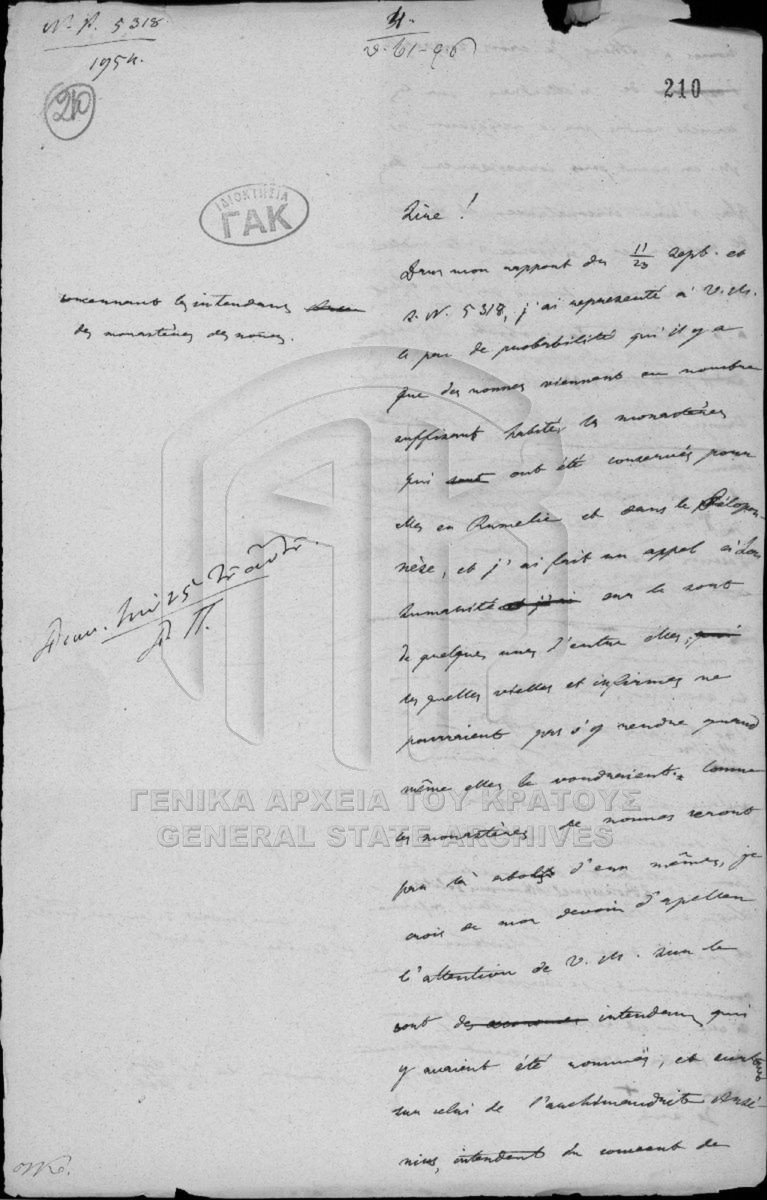 N. P. 5318
1954.
210
210
ΙΔΙΟΚΤΗΣΙΑ
ΓΑΚ
concernant les intendans
des monastères des nones.
Sire !
Dans mon rapport du 11/23 Sept. et
s. N. 5318, j'ai représenté à V. M.
le peu de probabilité qu'il y a
que des nonnes viennent en nombre
suffisant habiter les monastères
qui sont ont été conservés pour
elles en Rumelie et dans le Pélopon-
nèse, et j'ai fait un appel à Son
humanité et j'ai sur le sort
de quelques unes d'entre elles, qui
les quelles vielles et infirmes ne
pourraient pas s'y rendre quand
même elles le voudraient. Comme
les monastères de nonnes seront
par là abolis d'eux mêmes, je
crois de mon devoir d'apeller
l'attention de V. M. sur le
sort des intendans qui
y avaient été nommés, et surtout
sur celui de l'archimandrite Arsé-
nius, intendent du couvent de
ΓΕΝΙΚΑ ΑΡΧΕΙΑ ΤΟΥ ΚΡΑΤΟΥΣ
GENERAL STATE ARCHIVES